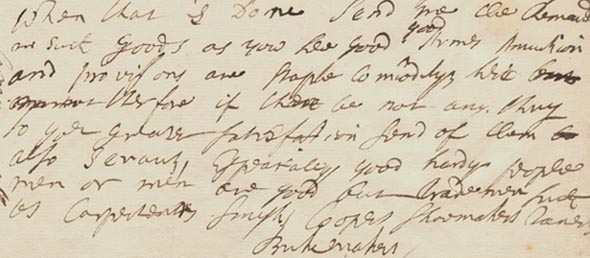 When that is Done Send me the Remaind
in such Goods as you See good good Armes Amunition
and provisions are Staple Comōditys here but
therfore if there be not any thing
to yor greater Satisfaction send of them
also Servants, Espetially good hardy people
men or men are good but Tradesmen such
as Carpenters Smiths Coopers Shoomakers Taners
Brickmakers,